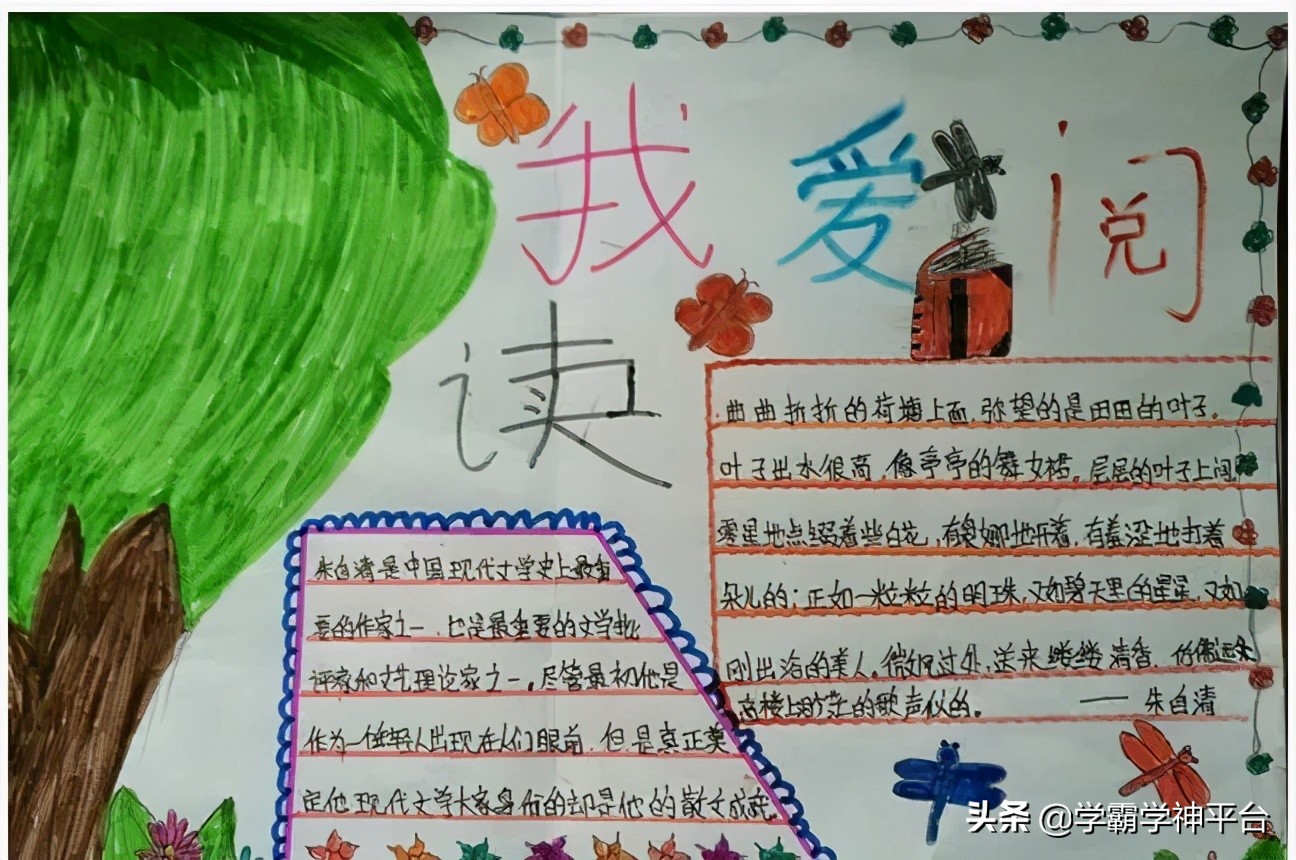 我爱阅
读
曲曲折折的荷塘上面,弥望的是田田的叶子。
叶子出水很高,像亭亭的舞女裙。层层的叶子上间
零星地点缀着些白花,有袅娜地开着,有羞涩地打着
朵儿的;正如一粒粒的明珠,又如碧天里的星星,又如
刚出浴的美人。微风过处,送来缕缕清香,仿佛远处
高楼上渺茫的歌声似的。 —— 朱自清
朱自清是中国现代文学史上最重
要的作家之一,也是最重要的文学批
评家和文艺理论家之一。尽管最初他是
作为一 人出现在人们眼前,但是真正奠
定他现代文学大家身份的却是他的散文成就。
头条 @学霸学神平台